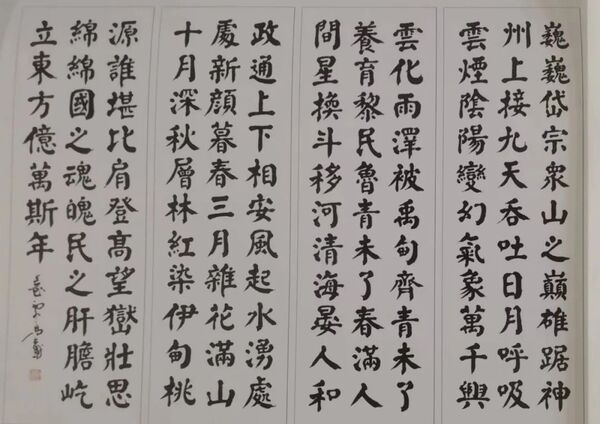 巍巍岱宗衆山之巔雄踞神
州上接九天吞吐日月呼吸
雲煙陰陽變幻氣象萬千興
雲化雨澤被禹甸齊青未了
養育黎民魯青未了春滿人
間星換斗移河清海晏人和
政通上下相安風起水湧處
處新顔暮春三月雜花滿山
十月深秋層林紅染伊甸桃
源誰堪比肩登高望嶽壯思
綿綿國之魂魄民之肝膽屹
立東方億萬斯年